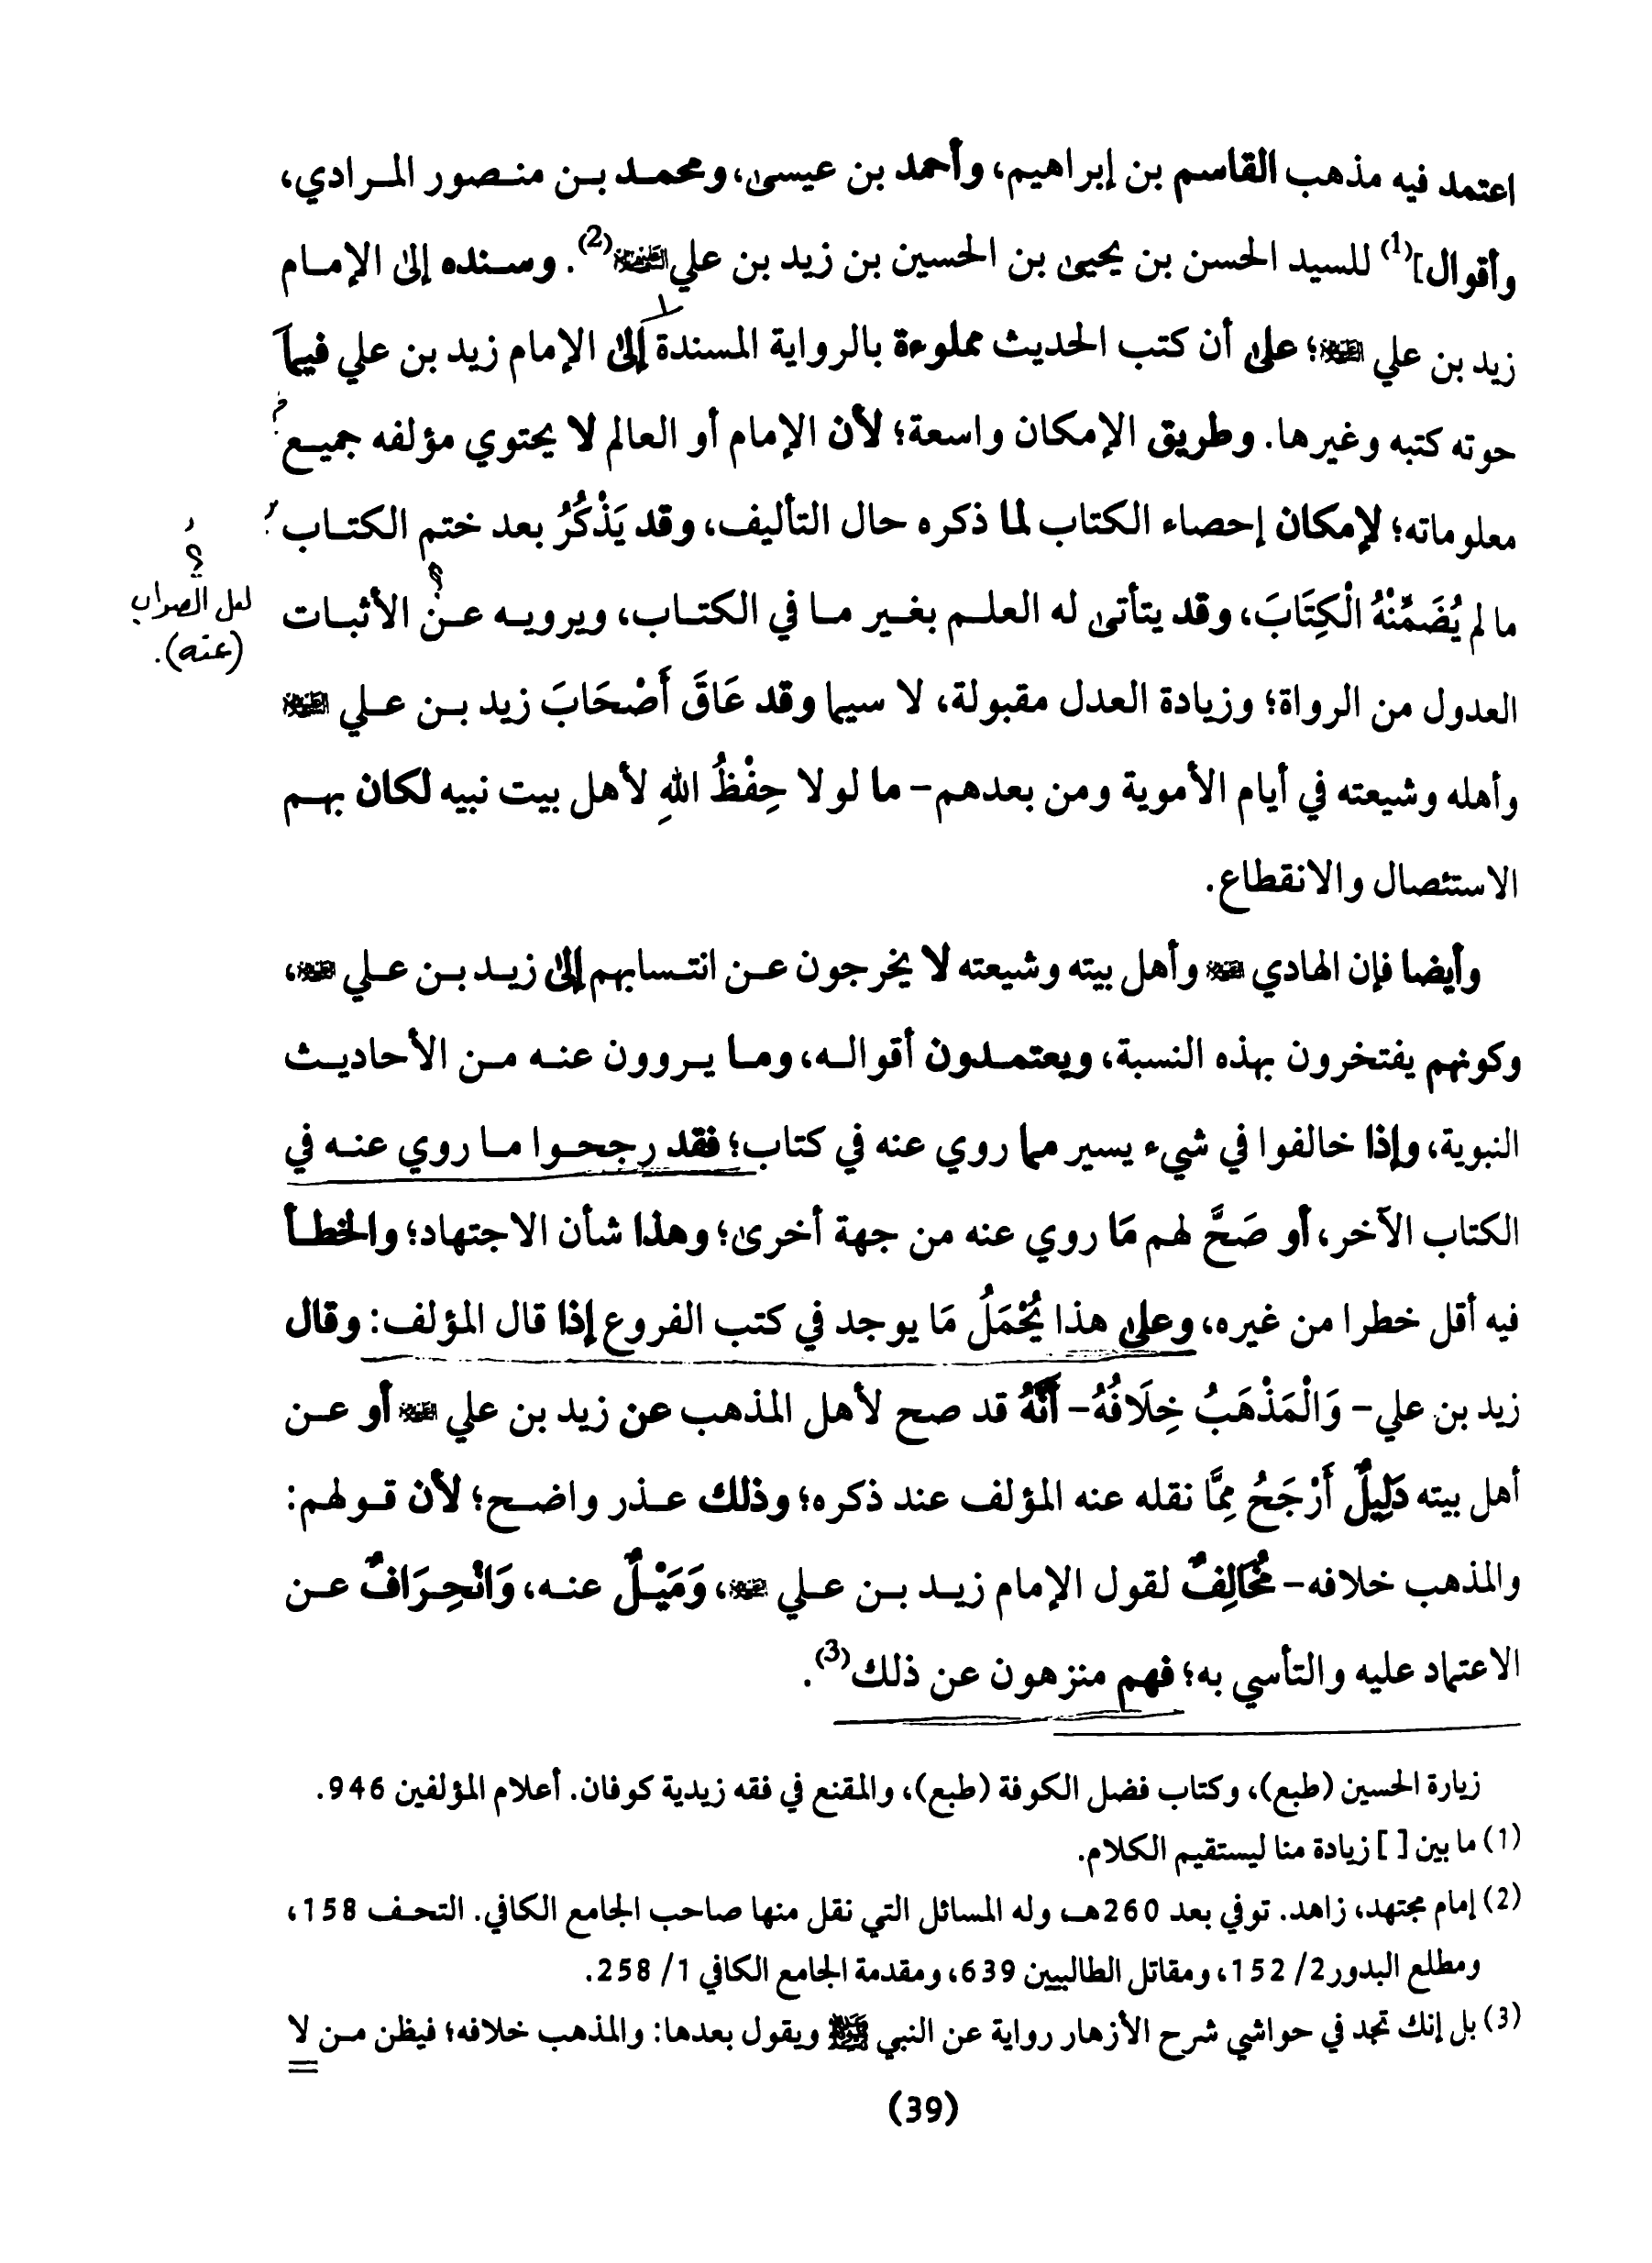 اعتمد فيه مذهب القاسم بن إبراهيم، وأحمد بن عيسى، ومحمد بن منصور المرادي،
وأقوال](1) للسيد الحسن بن يحيى بن الحسين بن زيد بن علي(2). وسنده إلى الإمام
زيد بن علي ؛ على أن كتب الحديث مملوءة بالرواية المسندة إلى الإمام زيد بن علي فيما
حوته كتبه وغيرها. وطريق الإمكان واسعة؛ لأن الإمام أو العالم لا يحتوي مؤلفه جميع
معلوماته؛ لإمكان إحصاء الكتاب لما ذكره حال التأليف، وقد يَذْكُرُ بعد ختم الكتاب
ما لم يُضَمِّنْهُ الْكِتَابَ، وقد يتأتى له العلم بغير ما في الكتاب، ويرويه عن الأثبات
؟
لعل الصواب
(عنه).
العدول من الرواة؛ وزيادة العدل مقبولة، لا سيما وقد عَاقَ أَصْحَابَ زيد بن علي
وأهله وشيعته في أيام الأموية ومن بعدهم- ما لولا حِفْظُ اللهِ لأهل بيت نبيه لكان بهم
الاستئصال والانقطاع.
وأيضا فإن الهادي وأهل بيته وشيعته لا يخرجون عن انتسابهم إلى زيد بن علي ،
وكونهم يفتخرون بهذه النسبة، ويعتمدون أقواله، وما يروون عنه من الأحاديث
النبوية، وإذا خالفوا في شيء يسير مما روي عنه في كتاب؛ فقد رجحوا ما روي عنه في
الكتاب الآخر، أو صَحَّ لهم مَا روي عنه من جهة أخرى؛ وهذا شأن الاجتهاد؛ والخطأ
فيه أقل خطرا من غيره، وعلى هذا يُحْمَلُ مَا يوجد في كتب الفروع إذا قال المؤلف: وقال
زيد بن علي- وَالْمَذْهَبُ خِلَافُهُ- أَنَّهُ قد صح لأهل المذهب عن زيد بن علي أو عن
أهل بيته دَلِيلٌ أَرْجَحُ مِمَّا نقله عنه المؤلف عند ذكره؛ وذلك عذر واضح؛ لأن قولهم:
والمذهب خلافه- مُخَالِفٌ لقول الإمام زيد بن علي ، وَمَيْلٌ عنه، وَانْحِرَافٌ عن
الاعتماد عليه والتأسي به؛ فهم منزهون عن ذلك(3).
زيارة الحسين (طبع)، وكتاب فضل الكوفة (طبع)، والمقنع في فقه زيدية كوفان. أعلام المؤلفين 946.
(1) ما بين [ ] زيادة منا ليستقيم الكلام.
(2) إمام مجتهد، زاهد. توفي بعد 260هـ، وله المسائل التي نقل منها صاحب الجامع الكافي. التحف 158،
ومطلع البدور2/ 152، ومقاتل الطالبيين 639، ومقدمة الجامع الكافي 1/ 258.
(3) بل إنك تجد في حواشي شرح الأزهار رواية عن النبي ﷺ ويقول بعدها: والمذهب خلافه؛ فيظن من لا
=
(39)